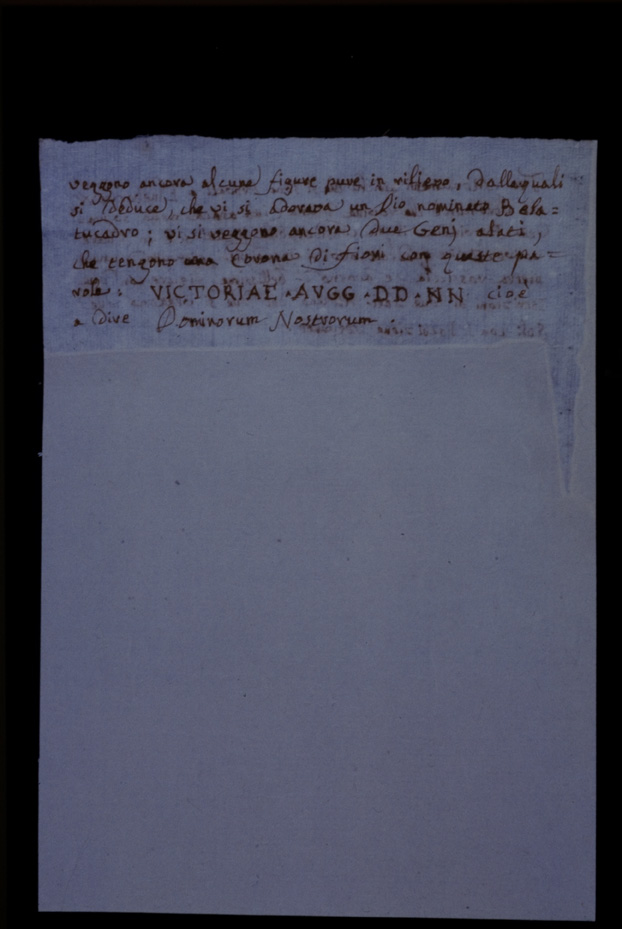 veggono ancora alcune figure pure in rilievo, dallequali
si deduce, che vi si adorava un Dio nominato Bela=
tucadro; vi si veggono ancora due Genj alati,
che tengono una Corona di fiori con queste pa=
role: VICTORIAE · AVGG · DD · NN cioè
a dire Dominorum Nostrorum